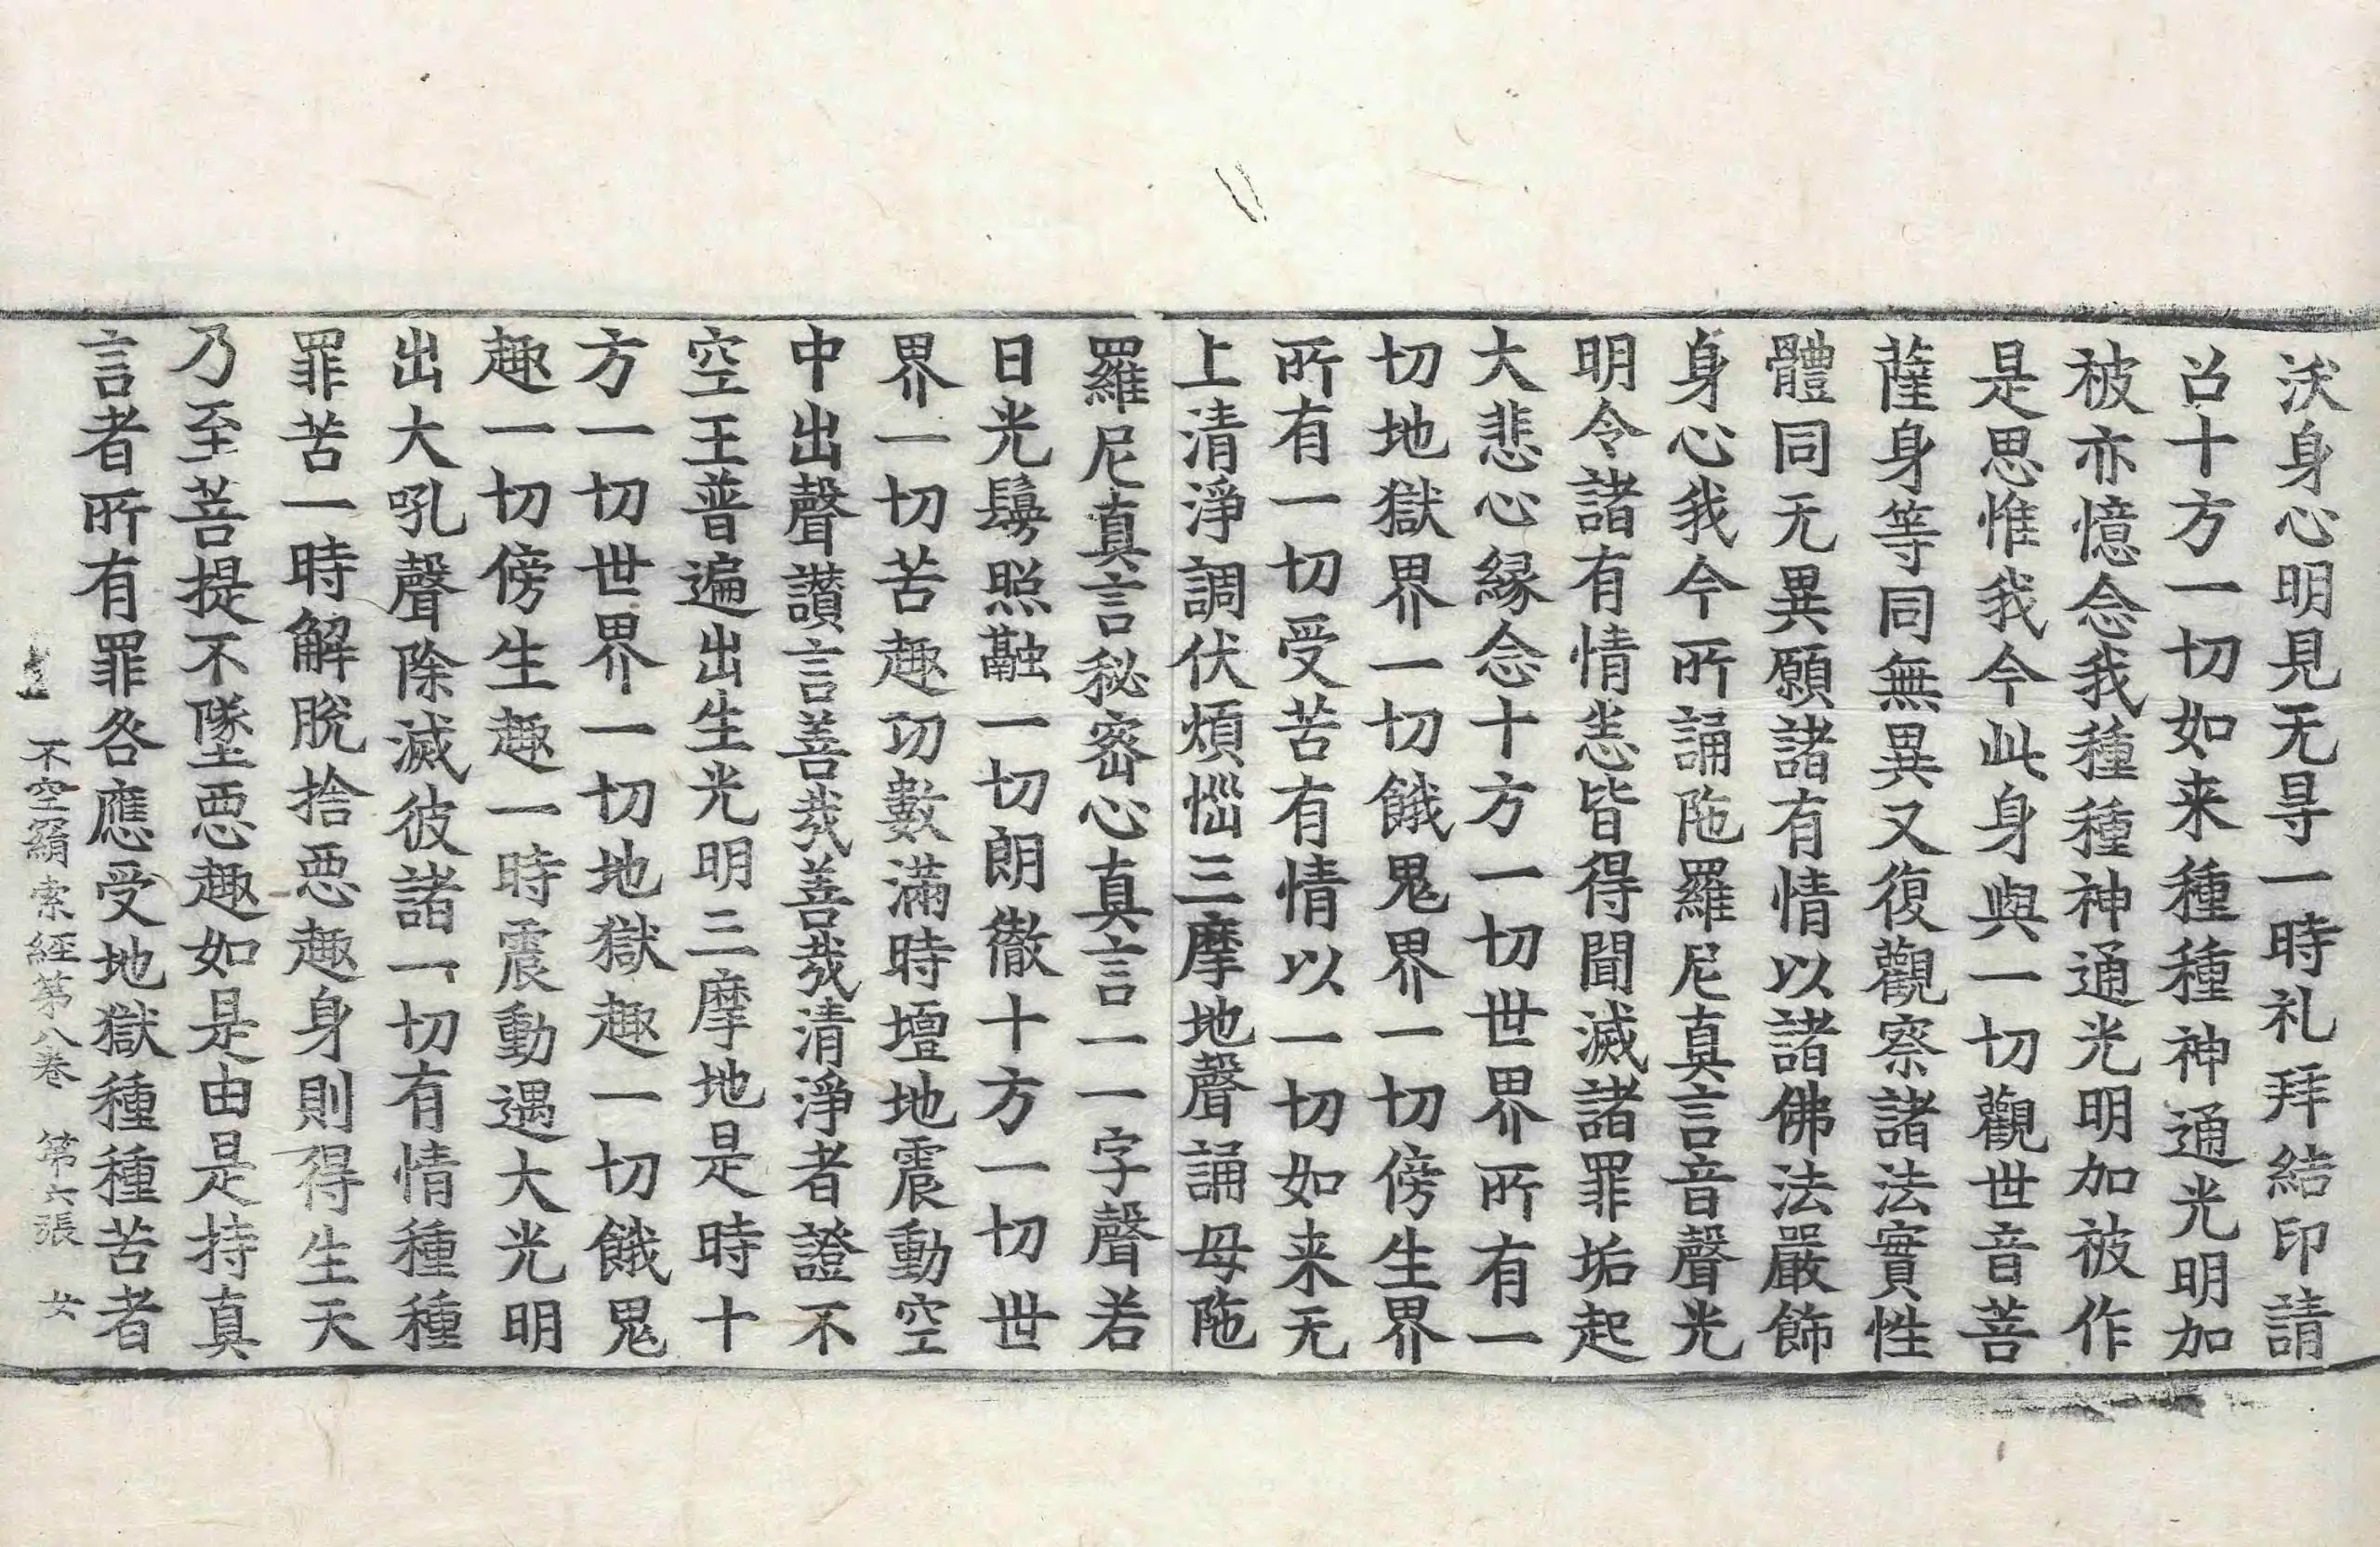 沃身心明見无㝵一時礼拜結印請
召十方一切如来種種神通光明加
被亦憶念我種種神通光明加被作
是思惟我今此身與一切觀世音菩
薩身等同無異又復觀察諸法實性
體同无異願諸有情以諸佛法嚴飾
身心我今所誦陁羅尼真言音聲光
明令諸有情恙皆得聞滅諸罪垢起
大悲心緣念十方一切世界所有一
切地獄界一切餓鬼界一切傍生界
所有一切受苦有情以一切如来无
上清淨調伏煩惱三摩地聲誦母陁
羅尼真言秘密心真言一一字聲若
日光鬘照融一切朗徹十方一切世
界一切苦趣功數滿時壇地震動空
中出聲讃言善哉善哉清淨者證不
空王普遍出生光明三摩地是時十
方一切世界一切地獄趣一切餓鬼
趣一切傍生趣一時震動遇大光明
出大吼聲除滅彼諸一切有情種種
罪苦一時解脫捨惡趣身則得生天
乃至菩提不墜惡趣如是由是持真
言者所有罪咎應受地獄種種苦者
不空羂索經第八卷 第六張 女